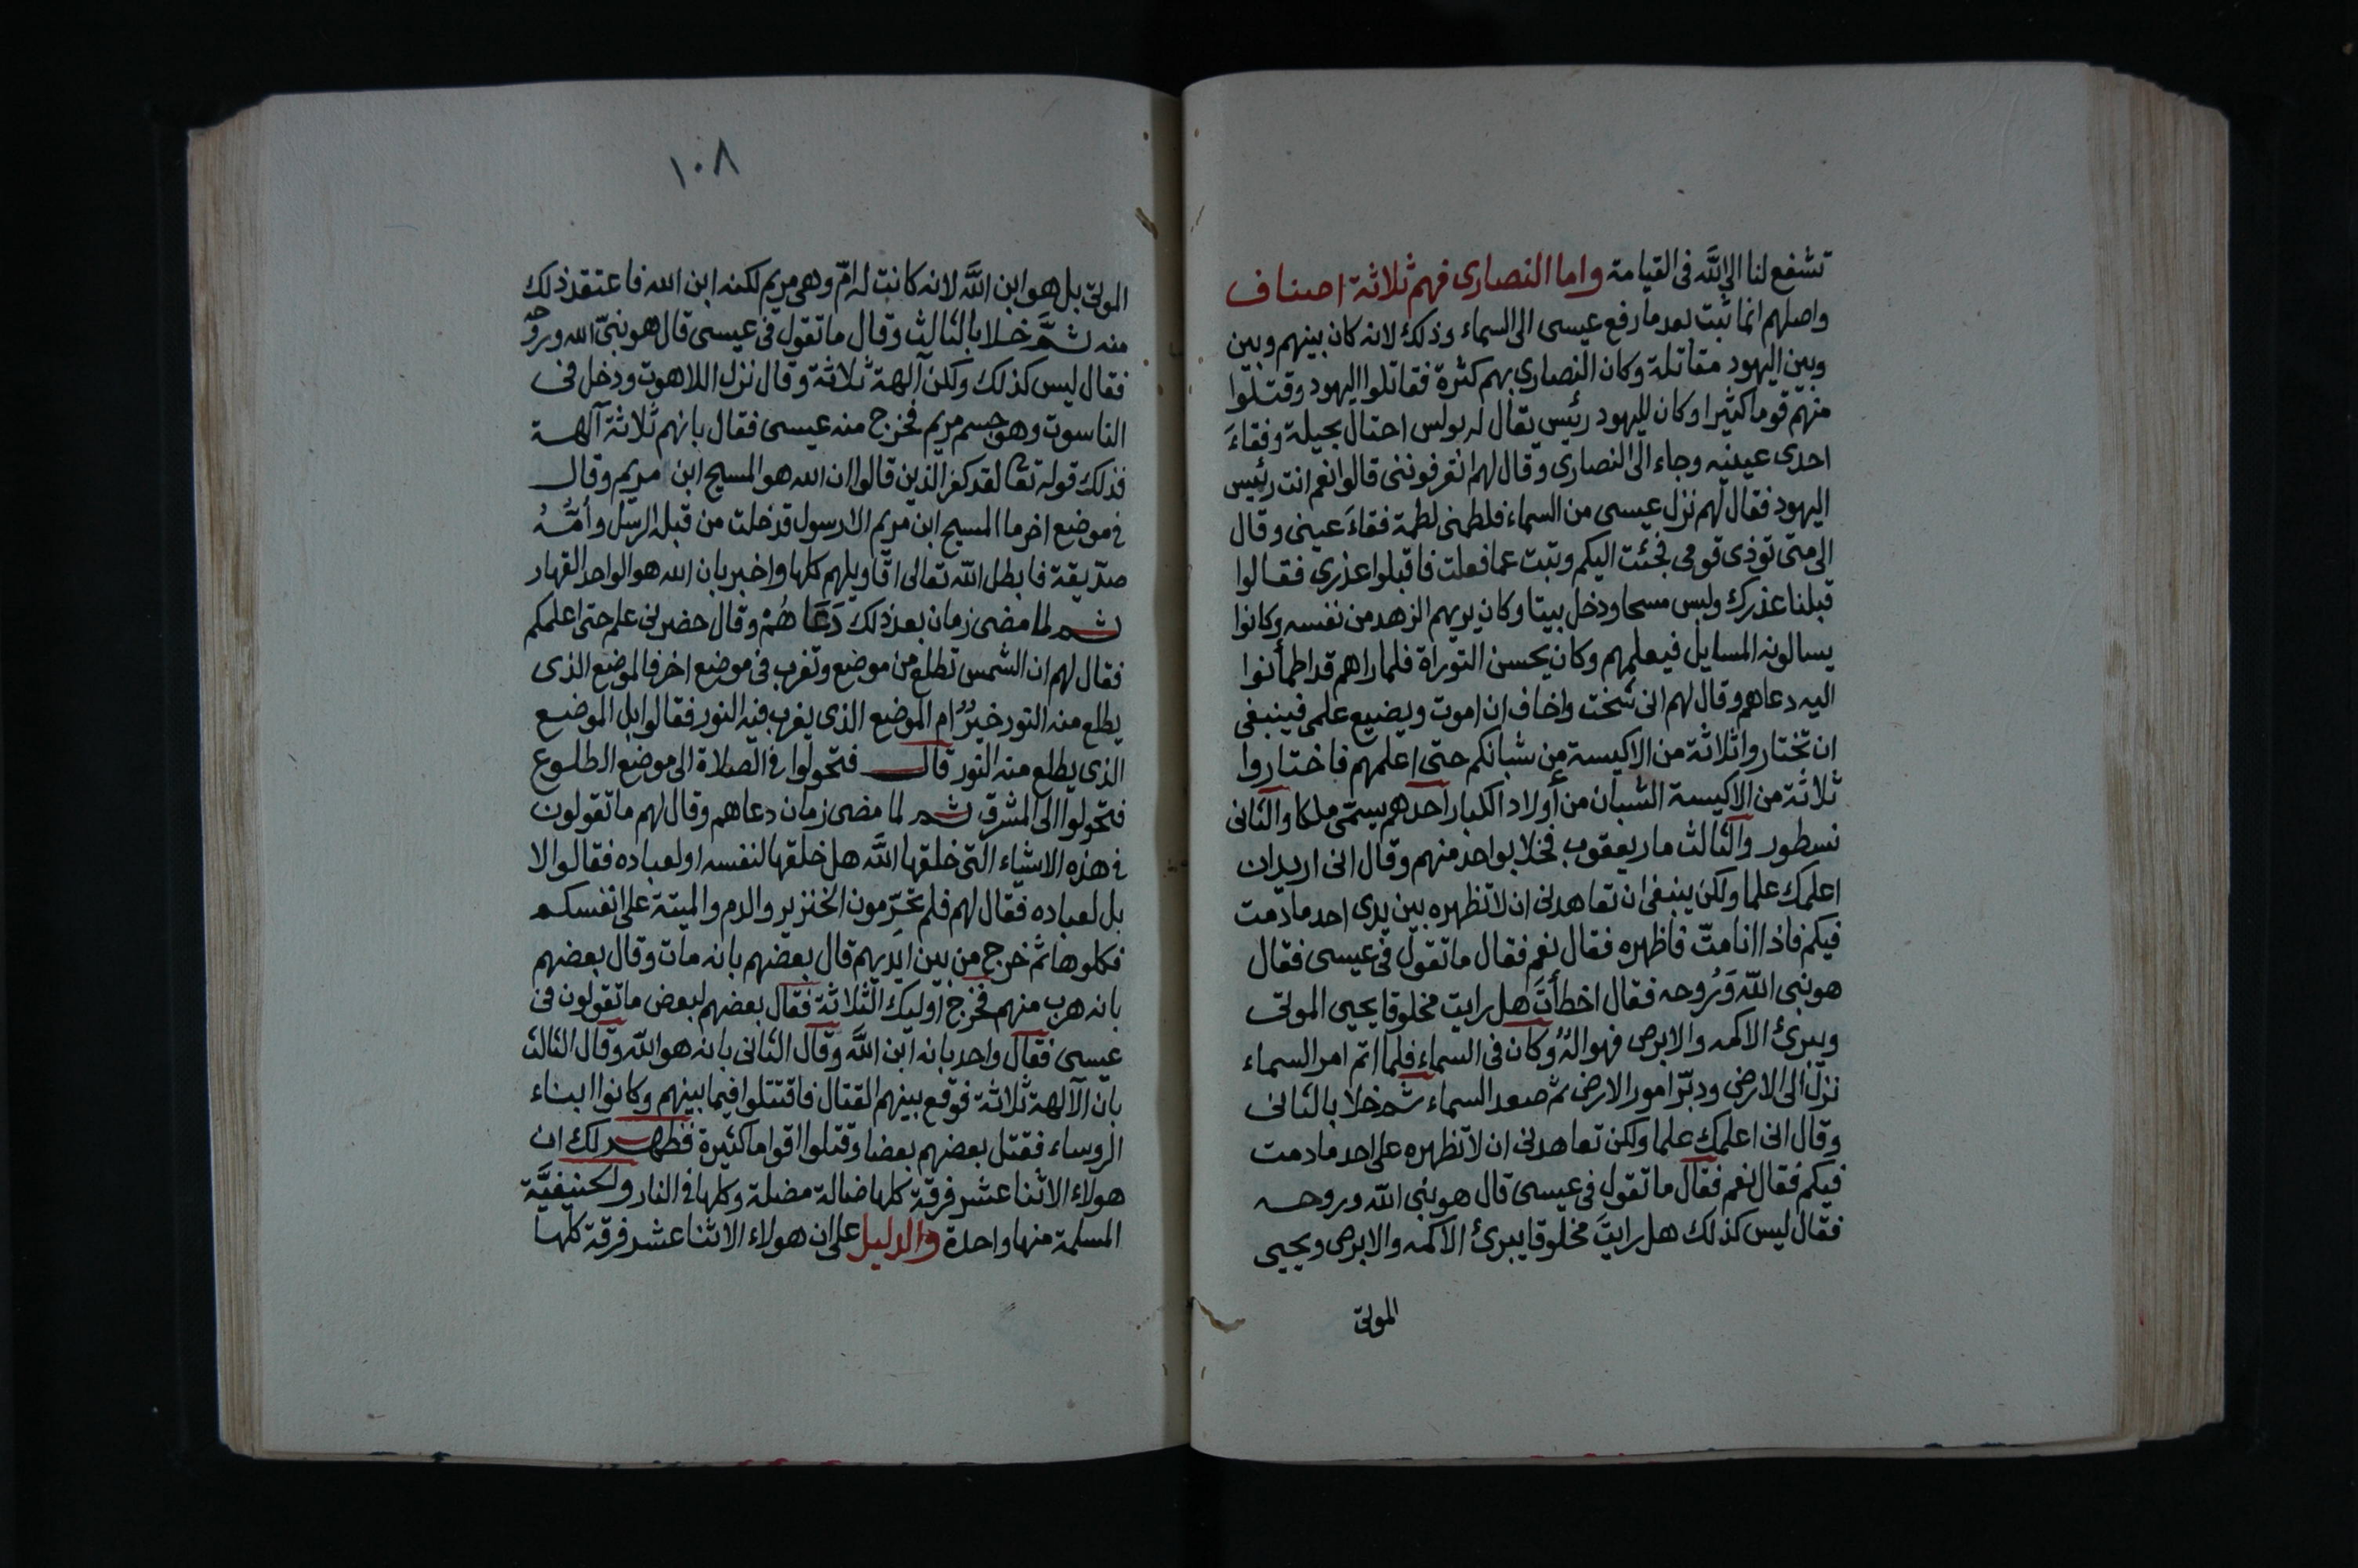 تشفع لنا الى الله فى القيامة واما النصارى فهم ثلاثة اصناف
واصلهم انما ثبت بعد ما رفع عيسى الى السماء وذلك لانه كان بينهم وبين
وبين اليهود مقاتلة وكان النصارى بهم كثرة فقاتلوا اليهود وقتلوا
منهم قوما كثيرا وكان لليهود رئيس يقال له بولس احتال بحيلة وفقاءَ
احدى عينيه وجاء الى النصارى وقال لهم اتعرفوننى قالوا نعم انت رئيس
اليهود فقال لهم نزل عيسى من السماء فلطمنى لطمة فقاءَ عينى وقال
الى متى توذى قومى فجئت اليكم وتبت عما فعلت فاقبلوا عذرى فقالوا
قبلنا عذرك ولبس مسحا ودخل بيتا وكان يريهم الزهد من نفسه وكانوا
يسالونه المسايل فيعلمهم وكان يحسن التوراة فلما راهم قد اطمأنوا
اليه دعاهم وقال لهم انى شخت واخاف ان اموت ويضيع علمى فينبغى
ان تختاروا ثلاثة من الاكيسة من شبانكم حتى اعلمهم فاختاروا
ثلاثة من الاكيسة الشبان من أولاد الكبار احدهم يسمّى ملكا والثانى
نسطور والثالث ماريعقوب فخلا بواحد منهم وقال انى اريد ان
اعلمك علما ولكن ينبغى ان تعاهدنى ان لا تظهره بين يدى احد ما دمت
فيكم فاذا انا متّ فاظهره فقال نعم فقال ما تقول فى عيسى فقال
هو نبى الله وَرُوحه فقال اخطأتَ هل رايت مخلوقا يحيى الموتى
ويبرئ الاكمه والابرص فهو الهٌ وكان فى السماء فلما اتم امر السماء
نزل الى الارض ودبّر امور الارض ثم صعد السماء ثم خلا بالثانى
وقال انى اعلمك علما ولكن تعاهدنى ان لا تظهره على احد ما دمت
فيكم فقال نعم فقال ما تقول فى عيسى قال هو نبى الله وروحه
فقال ليس كذلك هل رايتَ مخلوقا يبرئ الاكمه والابرص ويحيى
الموتى
١٠٨
الموتى بل هو ابن الله لانه كانت له امّ وهى مريم لكنه ابن الله فاعتقد ذلك
منه ثمَّ خلا بالثالث وقال ما تقول فى عيسى قال هو نبىّ الله وروحه
فقال ليس كذلك ولكن آلهة ثلاثة وقال نزل اللاهوت ودخل فى
الناسوت وهو جسم مريم فخرج منه عيسى فقال بانهم ثلاثة آلهة
فذلك قوله تعالى لقد كفر الذين قالوا ان الله هو المسيح ابن مريم وقال
فى موضع اخر ما المسيح ابن مريم الا رسول قد خلت من قبله الرسل وأمُّهُ
صدّيقة فابطل الله تعالى اقاويلهم كلها واخبر بان الله هو الواحد القهار
ثم لما مضى زمان بعد ذلك دَعَاهُمْ وقال حضرنى علم حتى اعلمكم
فقال لهم ان الشمس تطلع من موضع وتغرب فى موضع اخر فالموضع الذى
يطلع منه النور خيرٌ ام الموضع الذى يغرب فيه النور فقالوا بل الموضع
الذى يطلع منه النور قال فتحولوا فى الصلاة الى موضع الطلوع
فتحولوا الى المشرق ثم لما مضى زمان دعاهم وقال لهم ما تقولون
فى هذه الاشياء التى خلقها الله هل خلقها لنفسه او لعباده فقالوا لا
بل لعباده فقال لهم فلم تحرّمون الخنزير والدم والميتة على انفسكم
فكلوها ثم خرج من بين ايديهم قال بعضهم بانه مات وقال بعضهم
بانه هرب منهم فخرج اوليك الثلاثة فقال بعضهم لبعض ما تقولون فى
عيسى فقال واحد بانه ابن الله وقال الثانى بانه هو الله وقال الثالث
بان الآلهة ثلاثة فوقع بينهم القتال فاقتتلوا فيما بينهم وكانوا ابناء
الروساء فقتل بعضهم بعضا وقتلوا اقواما كثيرة فظهر لك ان
هولاء الاثنا عشر فرقة كلها ضالة مضلة وكلها فى النار والحنيفيَّة
المسلمة منها واحدة والدليل على ان هولاء الاثنا عشر فرقة كلها